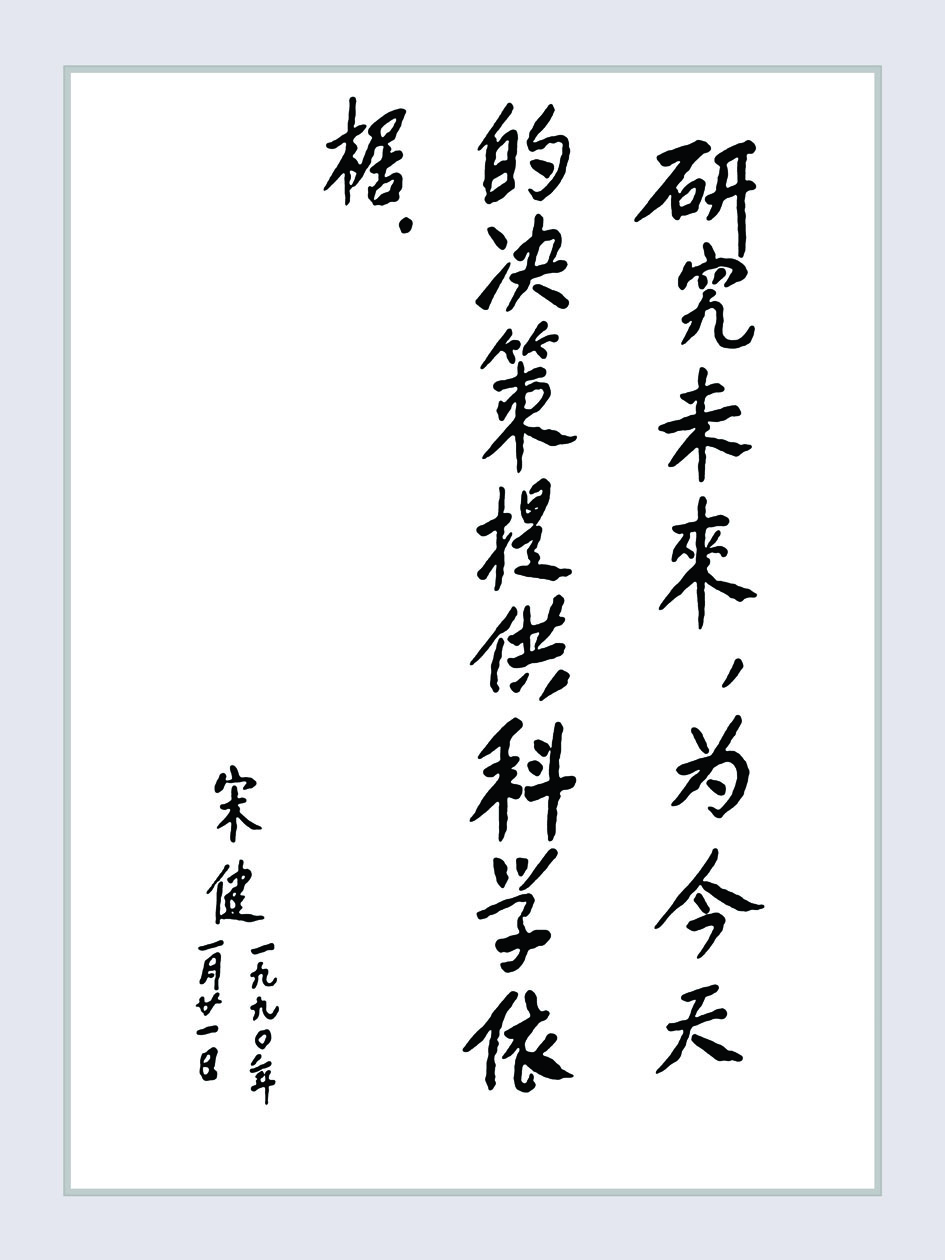 研究未來，为今天
的决策提供科学依
椐.
宋健
一九九〇年
一月廿一日